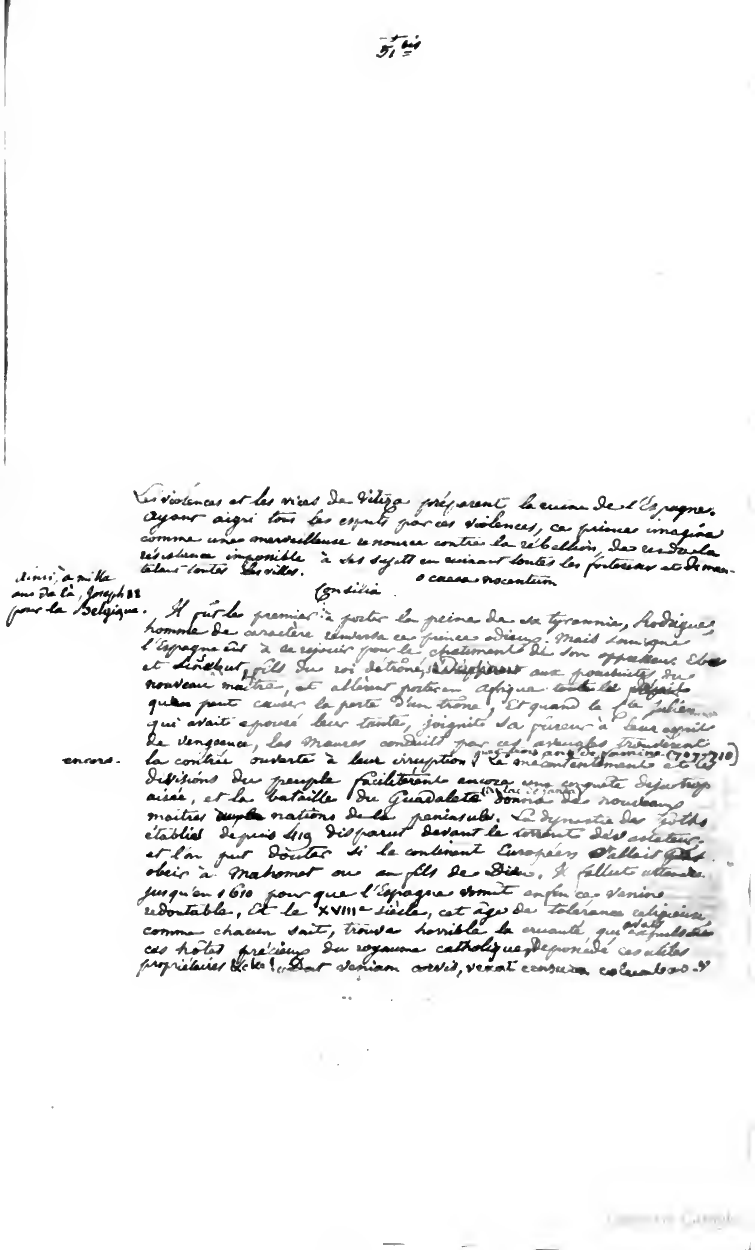 51 bis
Les violences et les vices de Vitiza préparent la ruine de l'Espagne.
Ayant aigri tous les esprits par ces violences, ce prince imagina
comme une merveilleuse ressource contre la rébellion, de rendre la
résistance impossible à ses sujets en ruinant toutes les forteresses et déman-
telant toutes les villes. O caeca nocentum
Consilia
Ainsi, à mille
ans de là, Joseph II
pour la Belgique.
Il fut le premier à porter la peine de sa tyrannie, Rodrigue,
homme de caractère renversa ce prince odieux. Mais sans que
l'Espagne eût à se réjouir pour le châtiment de son oppresseur.
et fils du roi détrôné, aux poursuites du
nouveau maître, et allèrent porter en Afrique tout le dépit
que peut causer la perte d'un trône, Et quand le Cte Julien
qui avait épousé leur tante, joignit sa fureur à leur esprit
de vengeance, les Maures conduits par ces aveugles trouvèrent
la contrée ouverte à leur irruption, le mécontentement et les
trois ans de famine (707-710)
encore.
divisions du peuple facilitèrent encore une conquête déjà trop
aisée, et la bataille du Guadalete donna de nouveaux
maîtres aux nations de la péninsule. La dynastie des Goths
établie depuis 419 disparut devant le torrent dévastateur,
et l'on put douter si le continent Européen allait pas
obéir à Mahomet ou au fils de Dieu. Il fallut attendre
jusqu'en 1610 pour que l'Espagne vomît enfin ce venin
redoutable, Et le XVIIIe siècle, cet âge de tolérance religieuse,
comme chacun sait, trouva horrible la cruauté qui avait expulsé
ces hôtes précieux du royaume catholique, dépossédé ces utiles
propriétaires &c &c! Dat veniam corvis, vexat censura columbas.